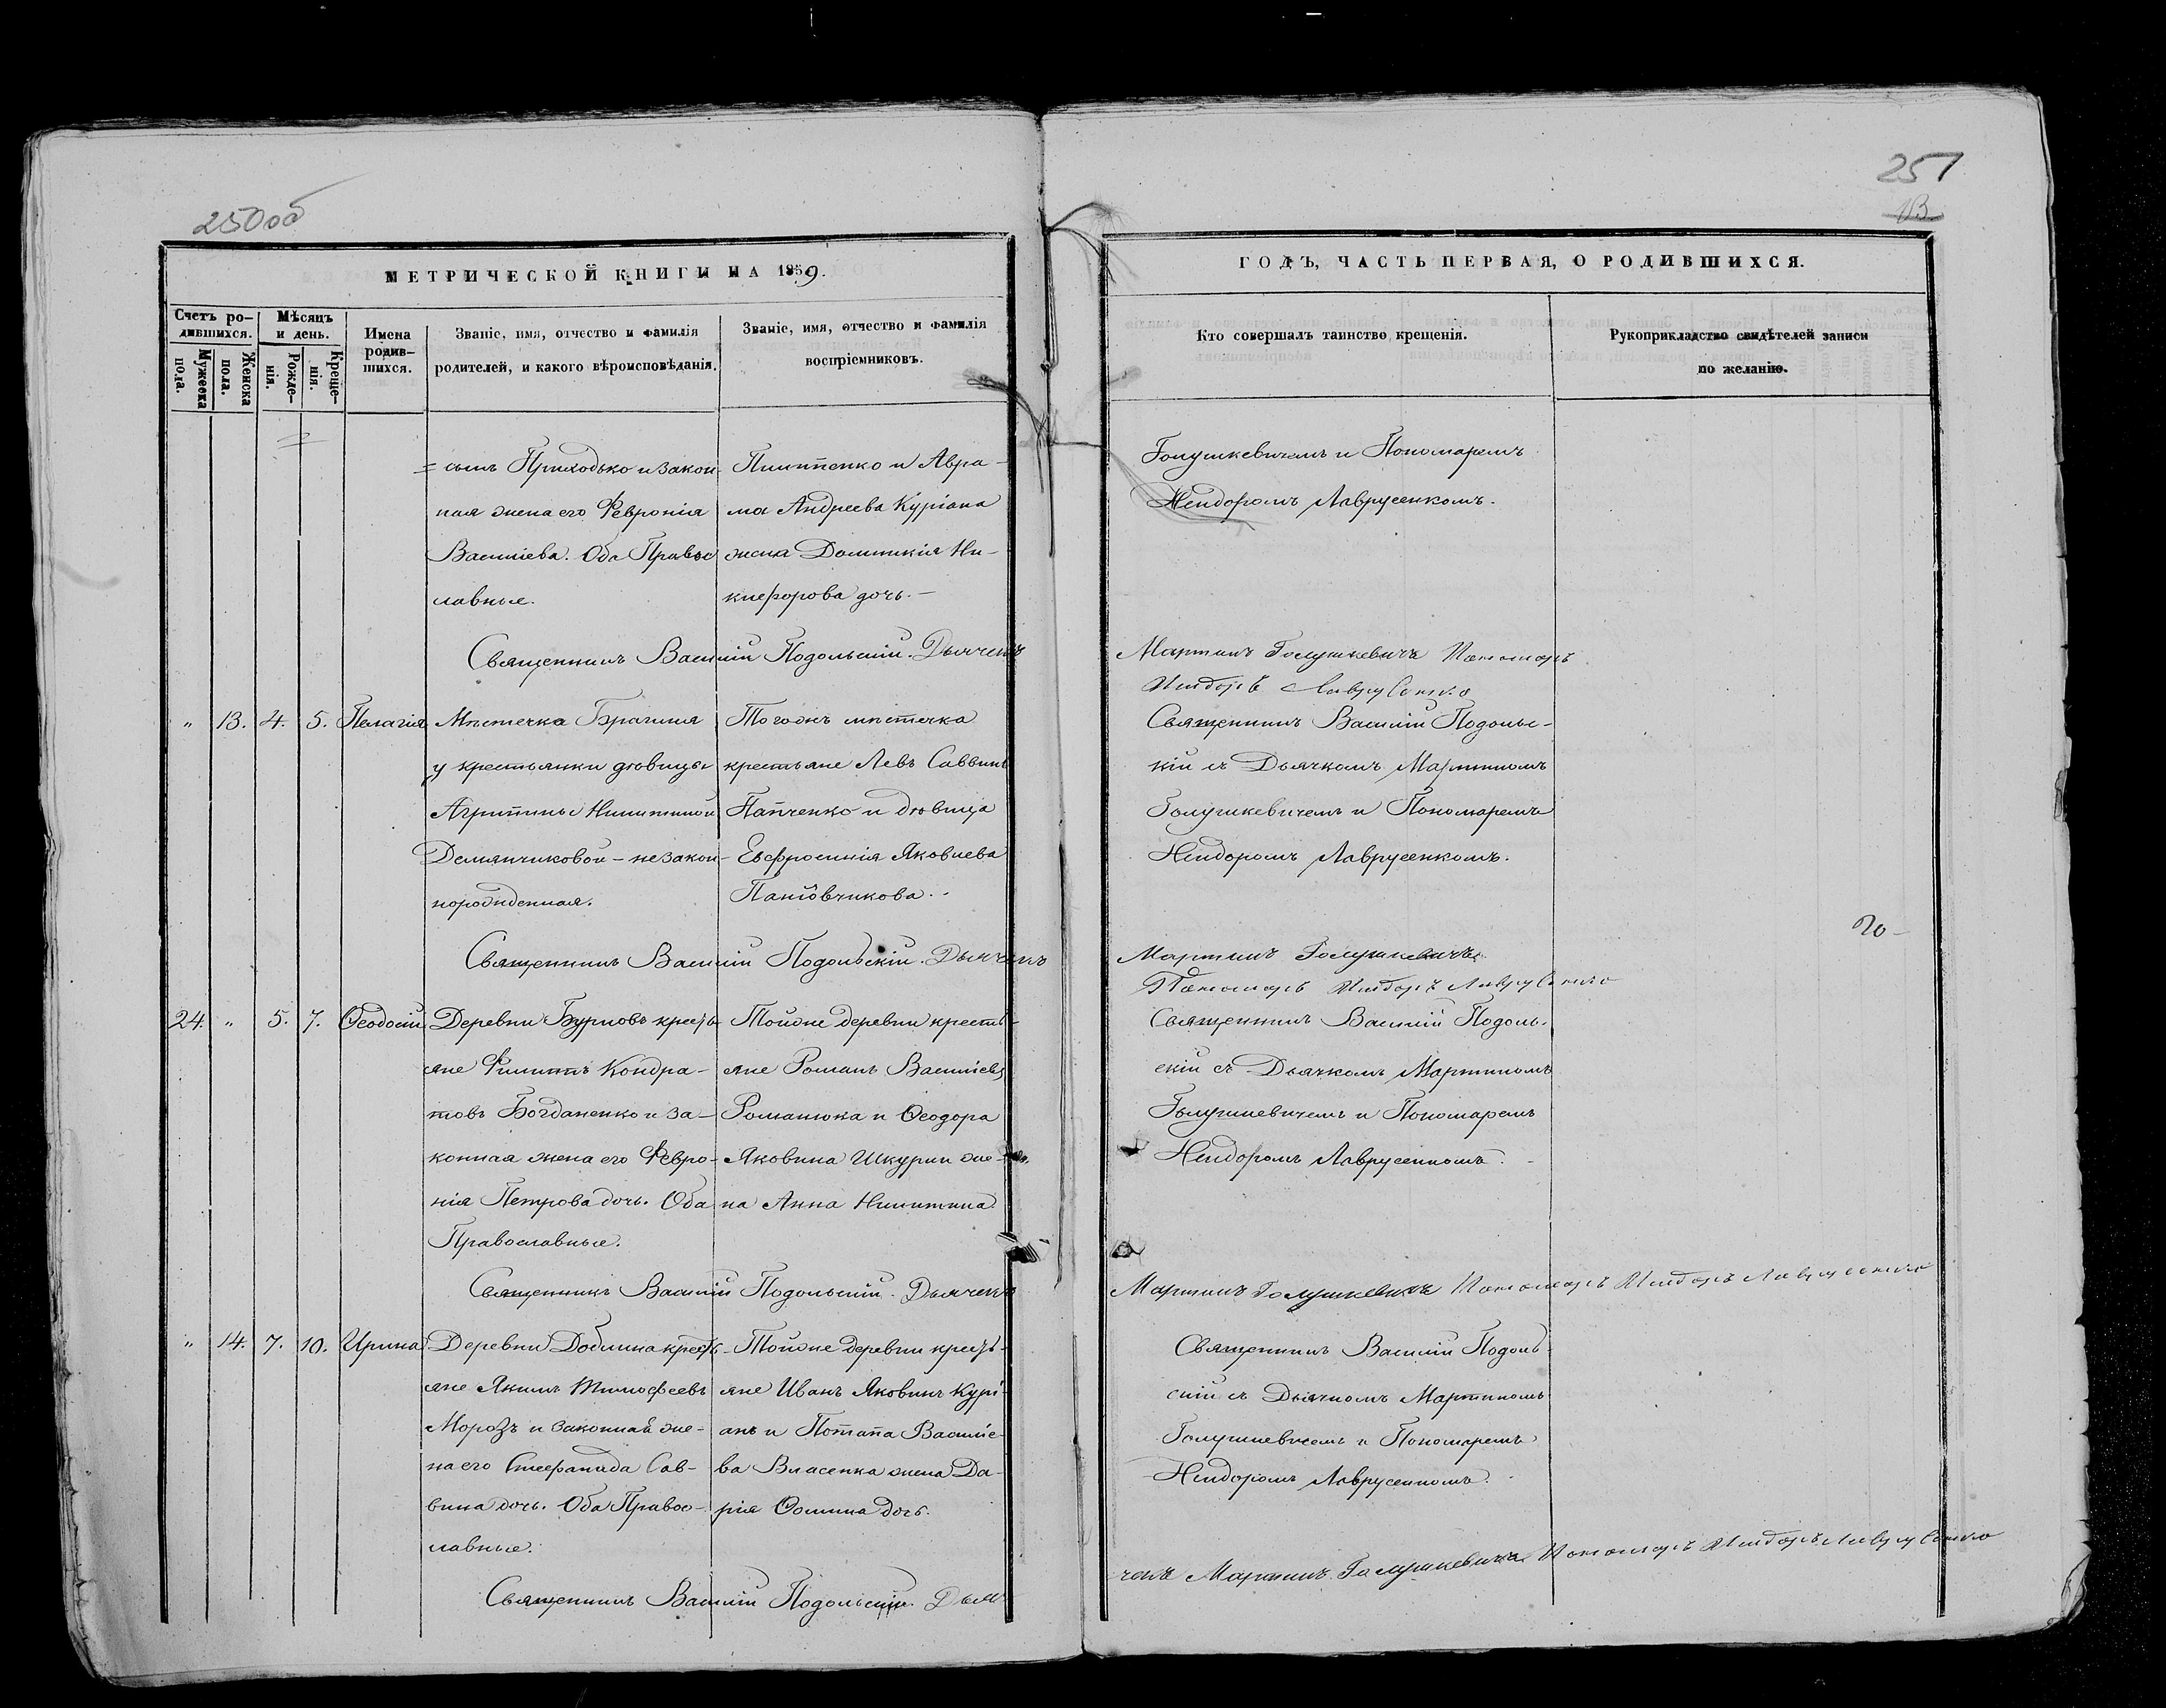 250об
МЕТРИЧЕСКОЙ КНИГИ НА 1859.
Счетъ ро-
дившихся.
Мужеска
пола.
Женска
пола.
Мѣсяцъ
и день.
Рожде-
нія.
Креще-
нія.
Имена
родив-
шихся.
Званіе, имя, отчество и фамилія
родителей, и какого вѣроисповѣданія.
Званіе, имя, отчество и фамилія
воспріемниковъ.
= сынъ Приходько и закон-
ная жена его Февронія
Васильева. Оба Право
славные.
Пилипенко и Авра-
ма Андреева Куріана
жена Домникія Ни-
кифорова дочь.-
Священникъ Василій Подольскій. Дьячекъ
" 13. 4. 5. Пелагія
Мѣстечка Брагиня
у крестьянки дѣвицы
Агрипины Никитиной
Демянчиковой - незакон-
норожденная.
Тогожъ мѣстечка
крестьяне Левъ Саввинъ
Панченко и дѣвица
Евфросинія Яковлева
Священникъ Василій Подольскій. Дьячекъ
24. " 5. 7. Ѳеодосій
Деревни Бурковъ кресть-
яне Филиппъ Кондра-
товъ Богданенко и за-
конная жена его Февро-
нія Петрова дочь. Оба
Православные.
Тойже деревни кресть-
яне Романъ Васильевъ
Романюка и Ѳеодора
Яковина Шкурки же-
на Анна Никитина
Священникъ Василій Подольскій. Дьячекъ
" 14. 7. 10. Ирина
Деревни кресть-
яне Якимъ Тимофеевъ
Морозъ и законная же-
на его Стефанида Сав-
вина дочь. Оба Правос-
лавные.
Тойже деревни кресть-
яне Иванъ Яковинъ Курі-
анъ и Потапа Василье-
ва Власенка жена Да-
рія Ѳомина дочь.
Священникъ Василій Подольскій. Дья
251
13
ГОДЪ, ЧАСТЬ ПЕРВАЯ, О РОДИВШИХСЯ.
Кто совершалъ таинство крещенія.
Рукоприкладство свидѣтелей записи
по желанію.
Голушкевичемъ и Пономаремъ
Исидоромъ Лаврусенкомъ.
Мартинъ Голушкевичъ Пономарь
Исидоръ Лаврусенко
Священникъ Василій Подольс-
кій съ Дьячкомъ Мартиномъ
Голушкевичемъ и Пономаремъ
Исидоромъ Лаврусенкомъ.
20-
Мартинъ Голушкевичъ
Пономарь Исидоръ Лаврусенко
Священникъ Василій Подоль-
скій съ Дьячкомъ Мартиномъ
Голушкевичемъ и Пономаремъ
Исидоромъ Лаврусенкомъ.
Мартинъ Голушкевичъ Пономарь Исидоръ Лаврусенко
Священникъ Василій Подоль-
скій съ Дьячкомъ Мартиномъ
Голушкевичемъ и Пономаремъ
Исидоромъ Лаврусенкомъ.
чекъ Мартинъ Голушкевичъ Пономарь Исидоръ Лаврусенко